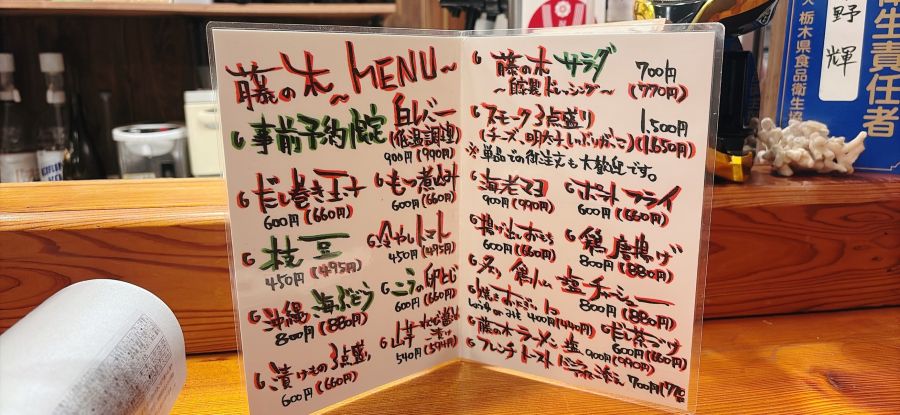 藤の木 ～MENU～
事前予約限定 白レバー
(低温調理)
900円(990円)
だし巻き玉子
600円(660円)
もつ煮込み
600円(660円)
枝豆
450円(495円)
冷やしトマト
450円(495円)
沖縄 海ぶどう
800円(880円)
にらの卵とじ
600円(660円)
漬けもの3点盛り
600円(660円)
山芋わさび醤油漬け
540円(594円)
藤の木サラダ 700円
～自家製ドレッシング～ (770円)
スモーク3点盛り 1,500円
(チーズ、明太子、いぶりがっこ) (1,650円)
※単品での御注文も大歓迎です。
海老マヨ
900円(990円)
ポテトフライ
600円(660円)
揚げ出しおもち
600円(660円)
鶏唐揚げ
800円(880円)
塩チャーシュー
800円(880円)
焼きおにぎり
しょうゆ or みそ 400円(440円)
だし茶づけ
600円(660円)
藤の木ラーメン 塩 900円(990円)
フレンチトースト バニラアイス添え 700円(770円)
衛生責任者
野 輝
栃木県食品衛生